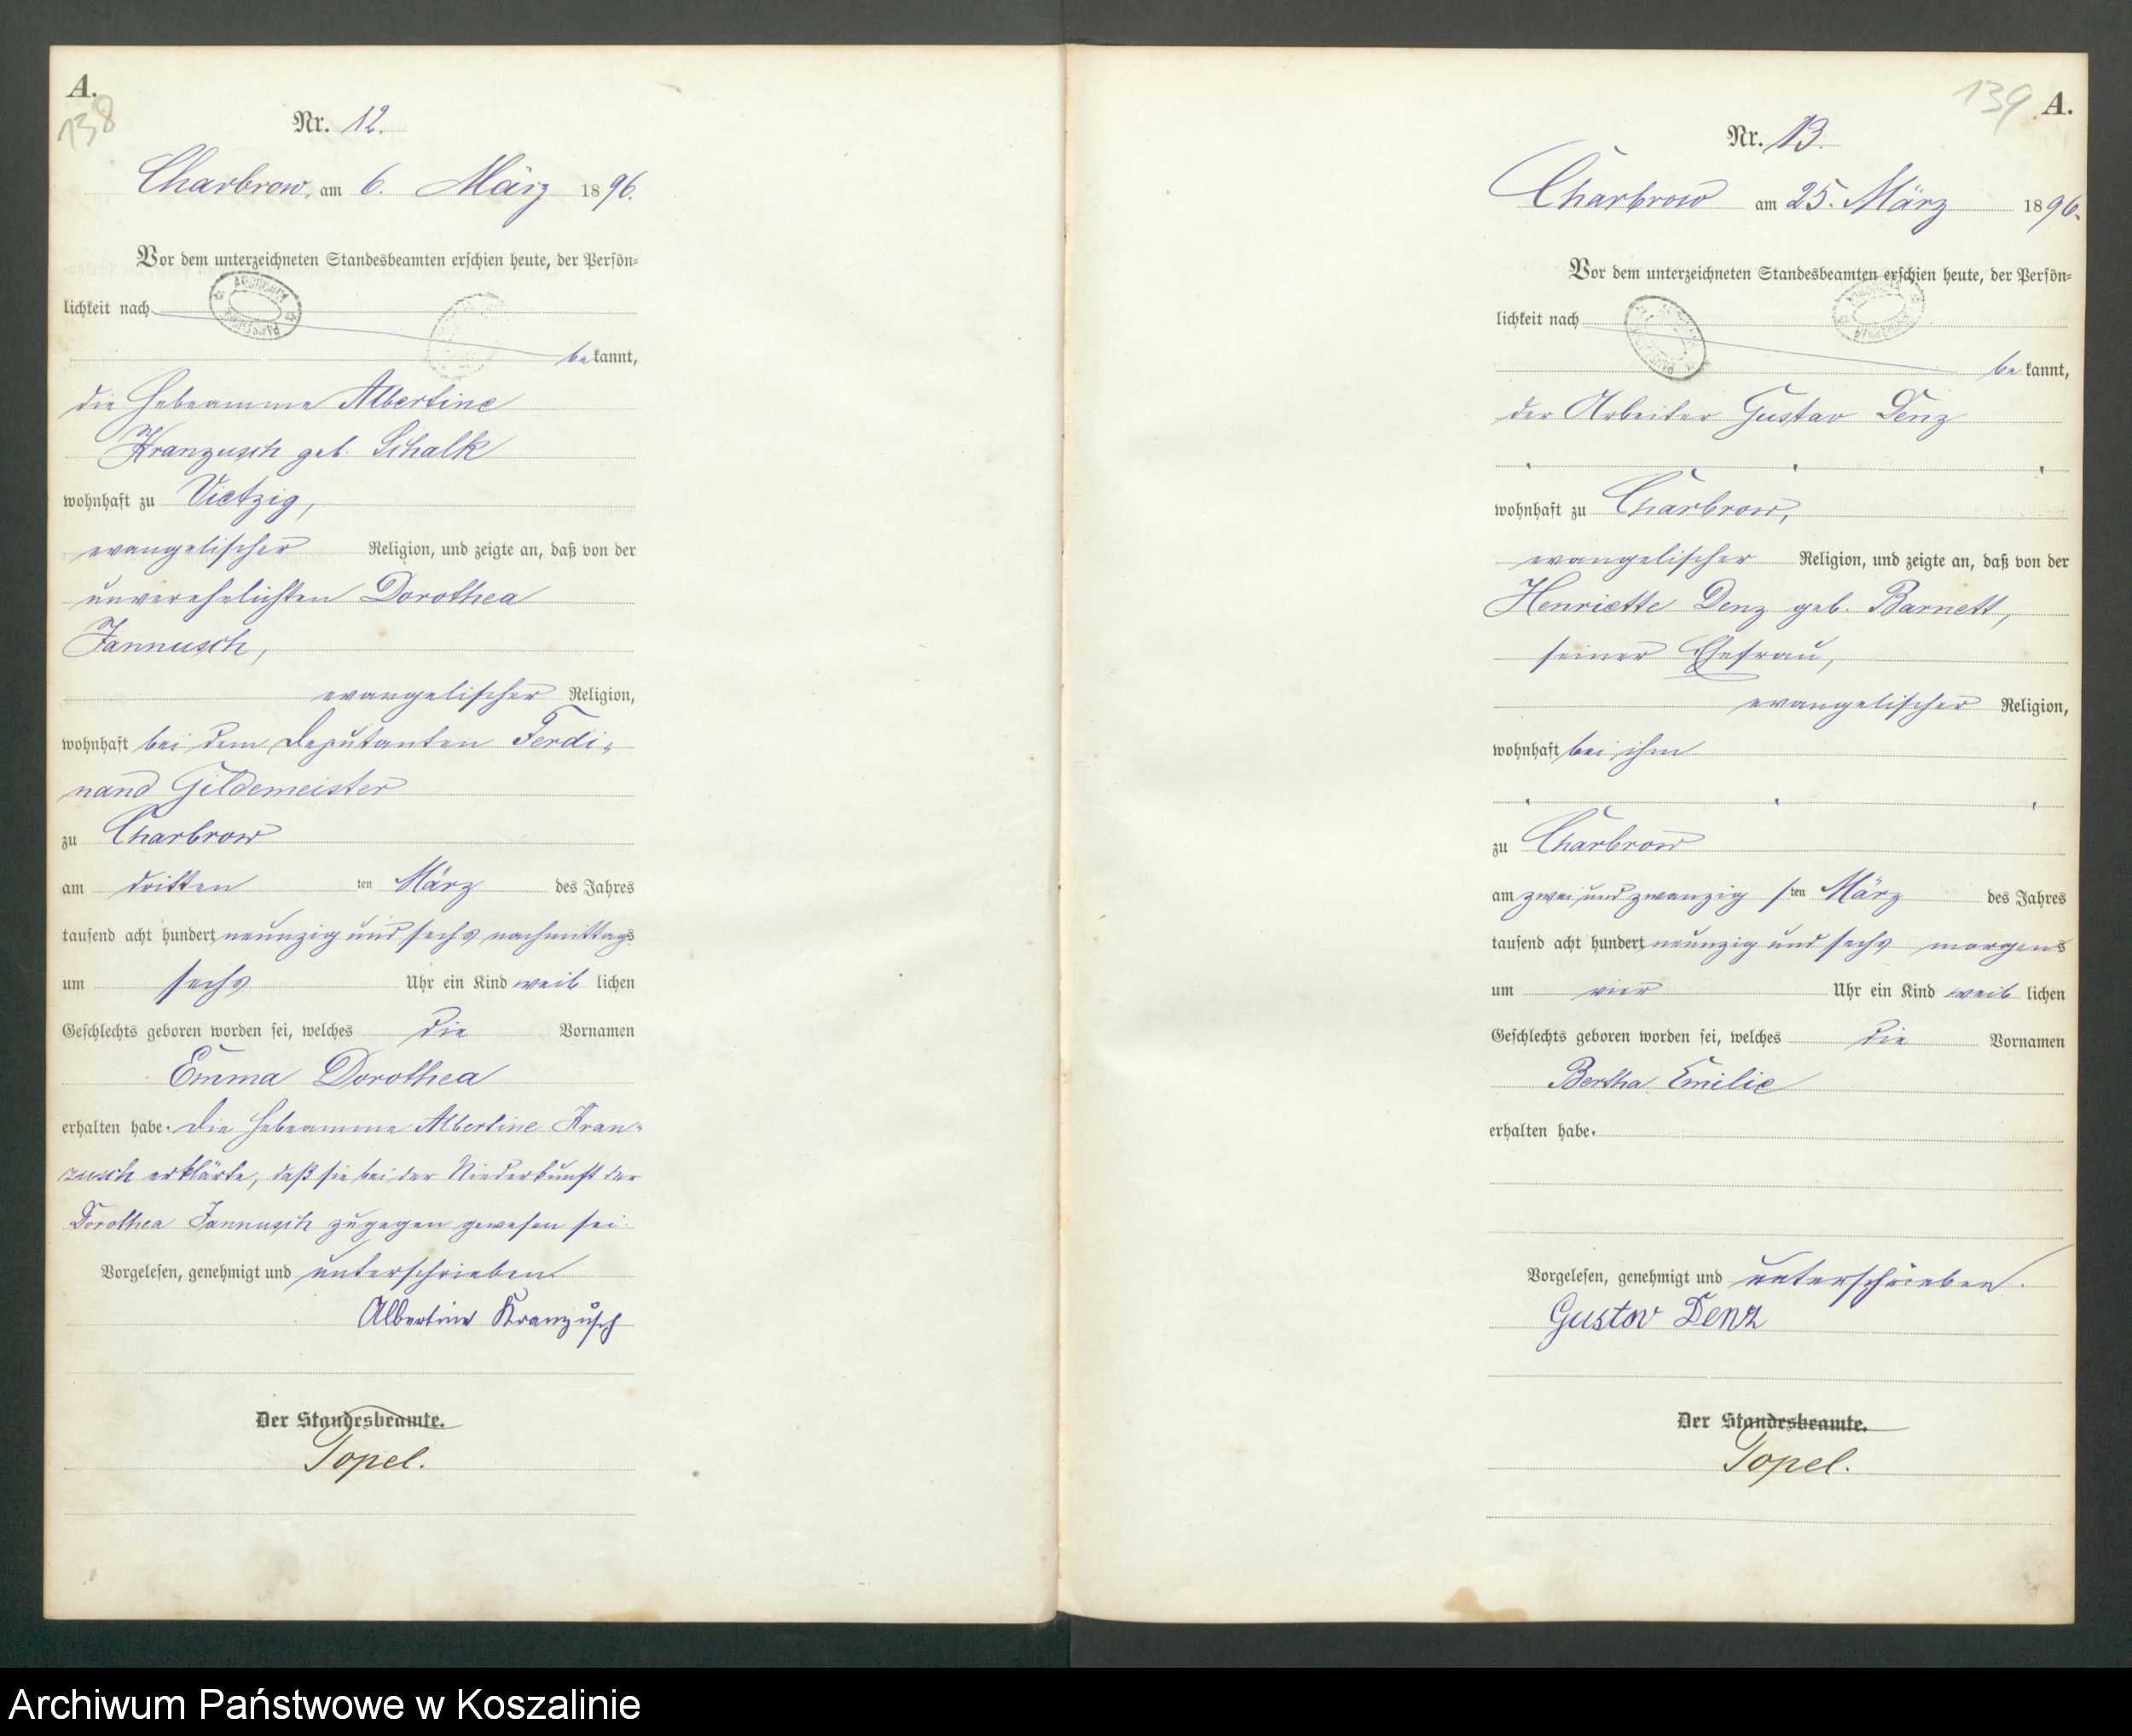 A.
138
Nr. 12.
Charbrow, am 6. März 1896.
Vor dem unterzeichneten Standesbeamten erschien heute, der Persön-
lichkeit nach
bekannt,
die Hebeamme Albertine
Kranzusch geb. Schalk
wohnhaft zu Vietzig,
evangelischer Religion, und zeigte an, daß von der
unverehelichten Dorothea
Jannusch,
evangelischer Religion,
wohnhaft bei dem Deputanten Ferdi-
nand Gildemeister
zu Charbrow
am dritten ten März des Jahres
tausend acht hundert neunzig und sechs nachmittags
um sechs Uhr ein Kind weiblichen
Geschlechts geboren worden sei, welches die Vornamen
Emma Dorothea
erhalten habe. Die Hebeamme Albertine Kran-
zusch erklärte, daß sie bei der Niederkunft der
Dorothea Jannusch zugegen gewesen sei.
Vorgelesen, genehmigt und unterschrieben
Albertine Kranzusch
Der Standesbeamte.
Topel.
139
A.
Nr. 13.
Charbrow am 25. März 1896.
Vor dem unterzeichneten Standesbeamten erschien heute, der Persön-
lichkeit nach
bekannt,
der Arbeiter Gustav Denz
wohnhaft zu Charbrow,
evangelischer Religion, und zeigte an, daß von der
Henriette Denz geb. Barnett,
seiner Ehefrau,
evangelischer Religion,
wohnhaft bei ihm
zu Charbrow
am zwei und zwanzigsten März des Jahres
tausend acht hundert neunzig und sechs morgens
um vier Uhr ein Kind weiblichen
Geschlechts geboren worden sei, welches die Vornamen
Bertha Emilie
erhalten habe.
Vorgelesen, genehmigt und unterschrieben.
Gustav Denz
Der Standesbeamte.
Topel.
Archiwum Państwowe w Koszalinie